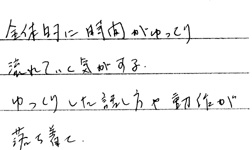 全体的に時間がゆっくり
流れていく気がする.
ゆっくりした話し方や動作が
落ち着く.